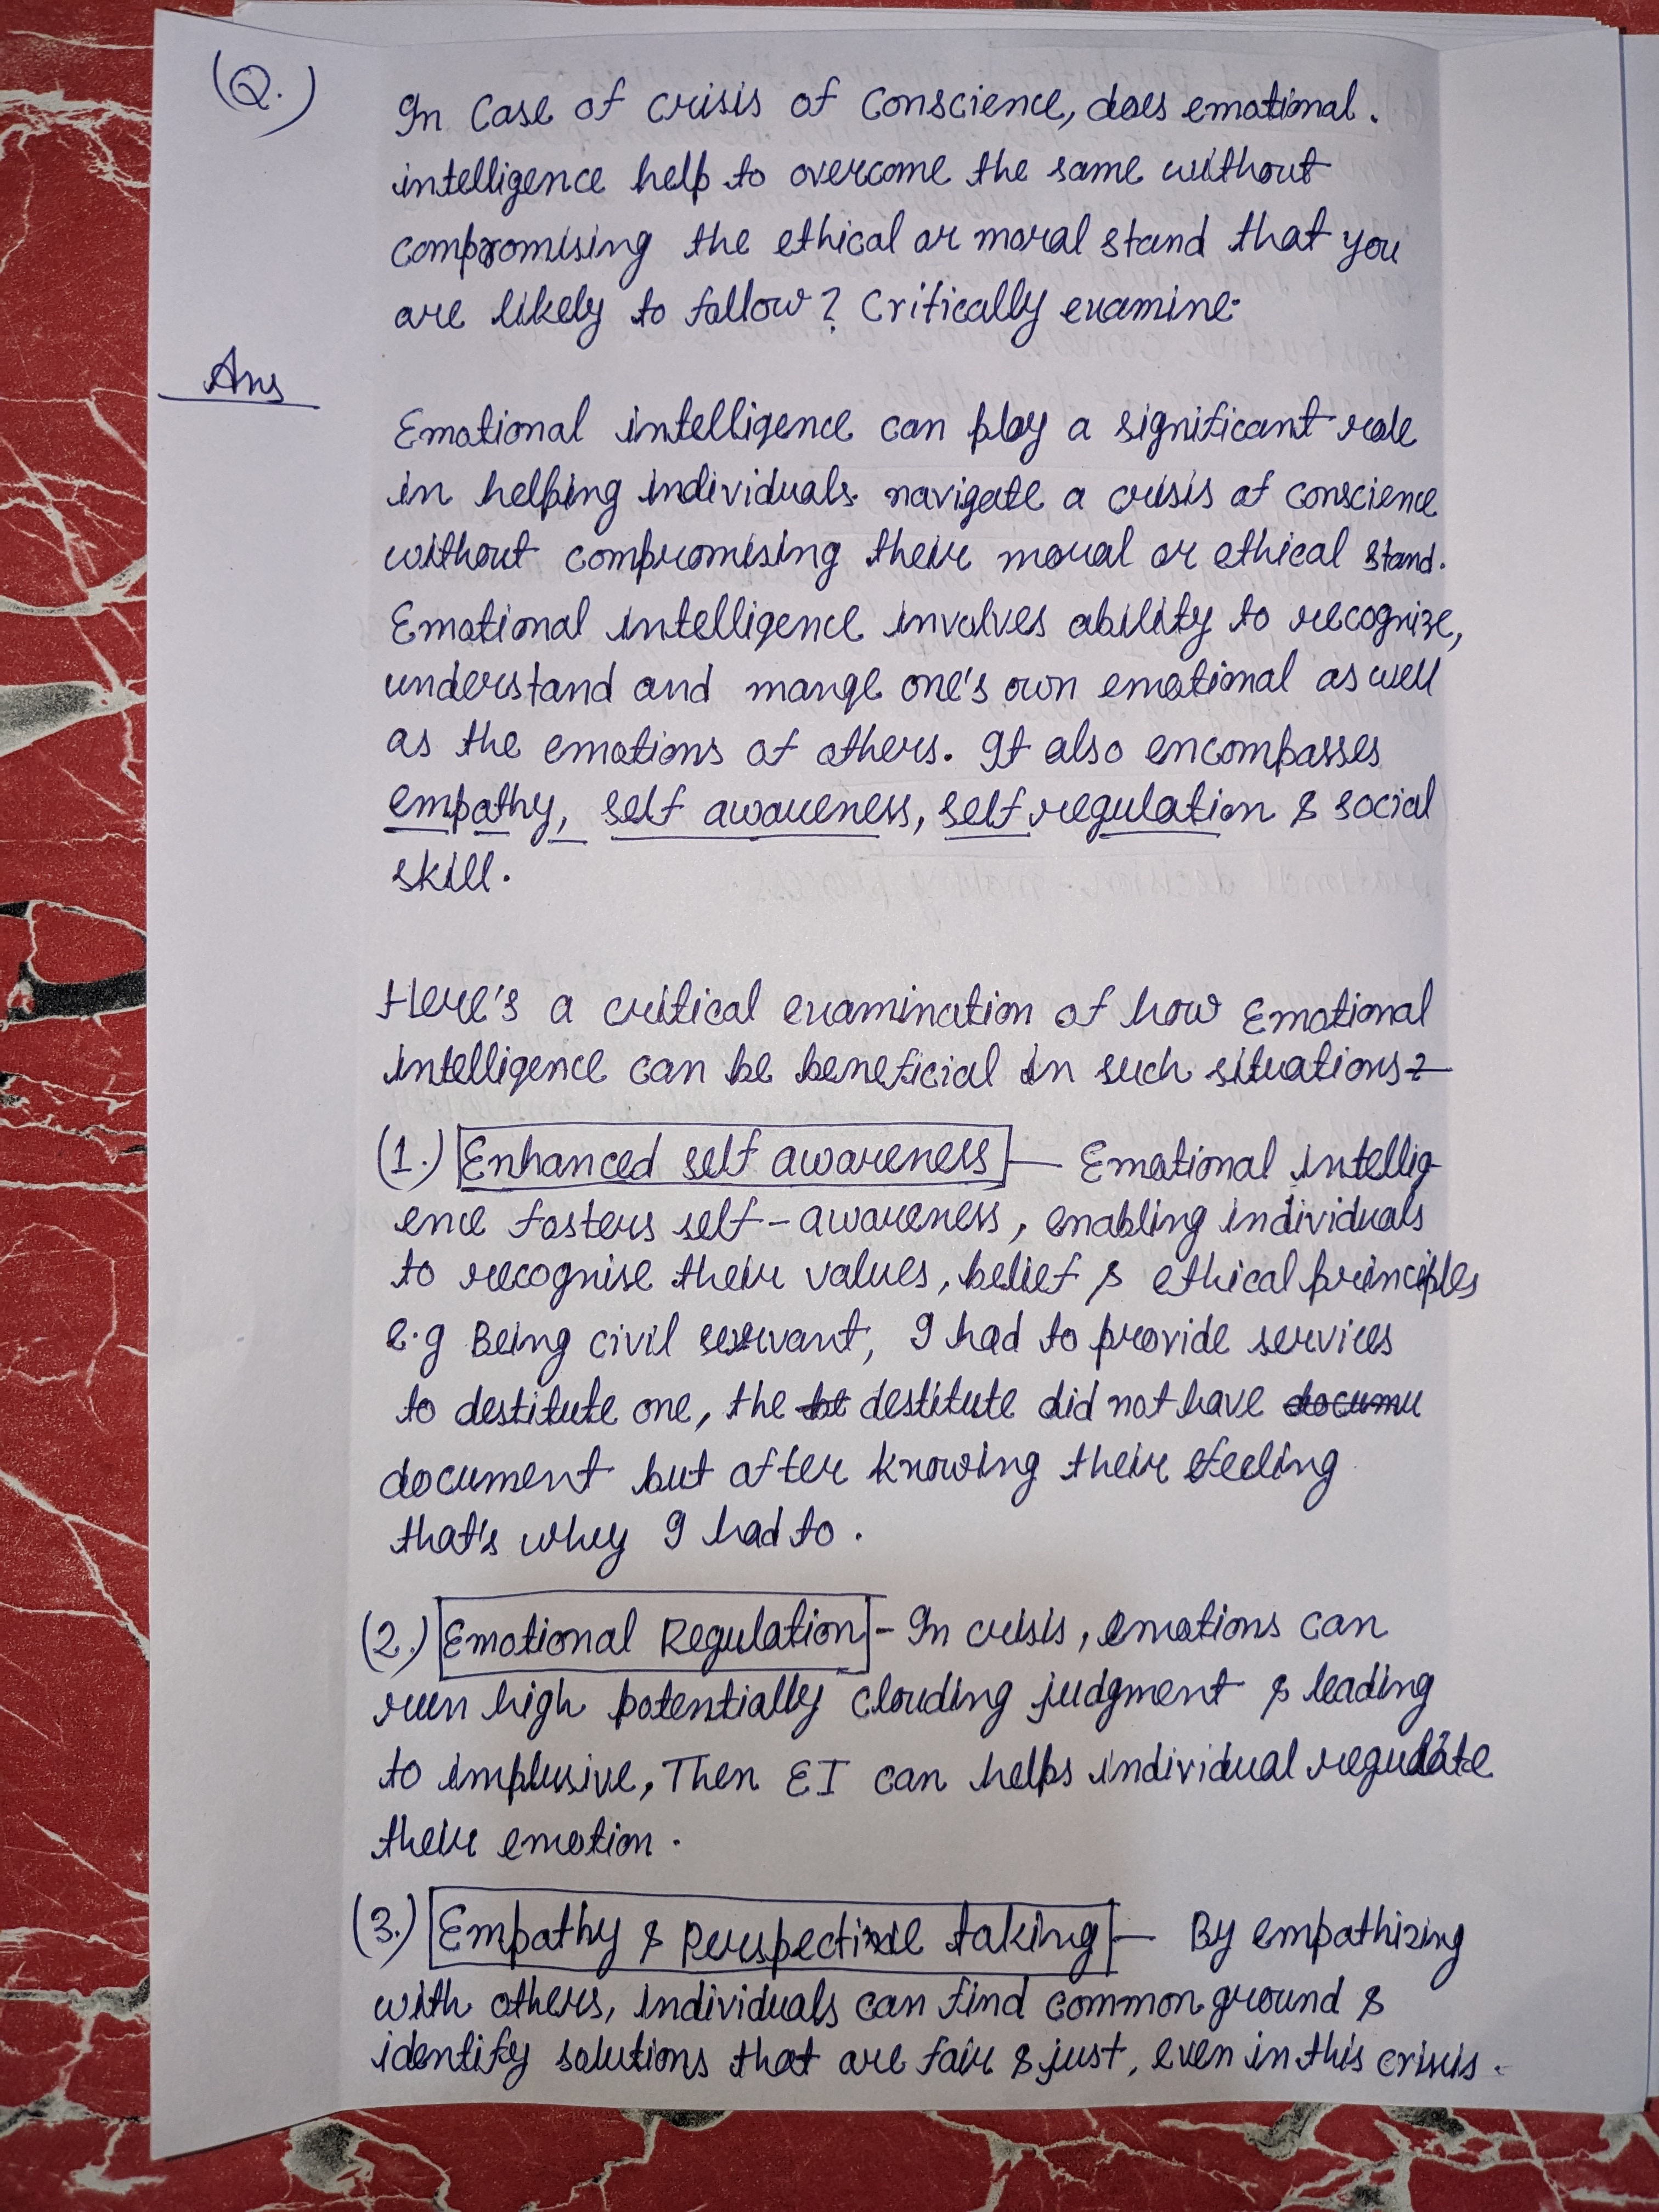 (Q.) In Case of crisis of Conscience, does emotional.
intelligence help to overcome the same without
compromising the ethical or moral stand that you
are likely to follow? Critically examine.
Ans
Emotional intelligence can play a significant role
in helping individuals. navigate a crisis of conscience
without compromising their moral or ethical stand.
Emotional intelligence involves ability to recognize,
understand and mange one's own emotional as well
as the emotions of others. It also encompasses
empathy, self awareness, self regulation & social
skill.
Here's a critical examination of how Emotional
intelligence can be beneficial in such situations:-
(1.) Enhanced self awareness — Emotional intellig-
ence fosters self-awareness, enabling individuals
to recognise their values, belief & ethical principles
e.g Being civil servant, I had to provide services
to destitute one, the destitute did not have docume
document but after knowing their feeling
that's whey I had to.
(2.) Emotional Regulation - In crisis, emotions can
run high potentially clouding judgment & leading
to implusive, Then EI can helps individual regulate
their emotion.
(3.) Empathy & Perspective taking — By empathizing
with others, individuals can find common ground &
identify solutions that are fair & just, even in this crisis.